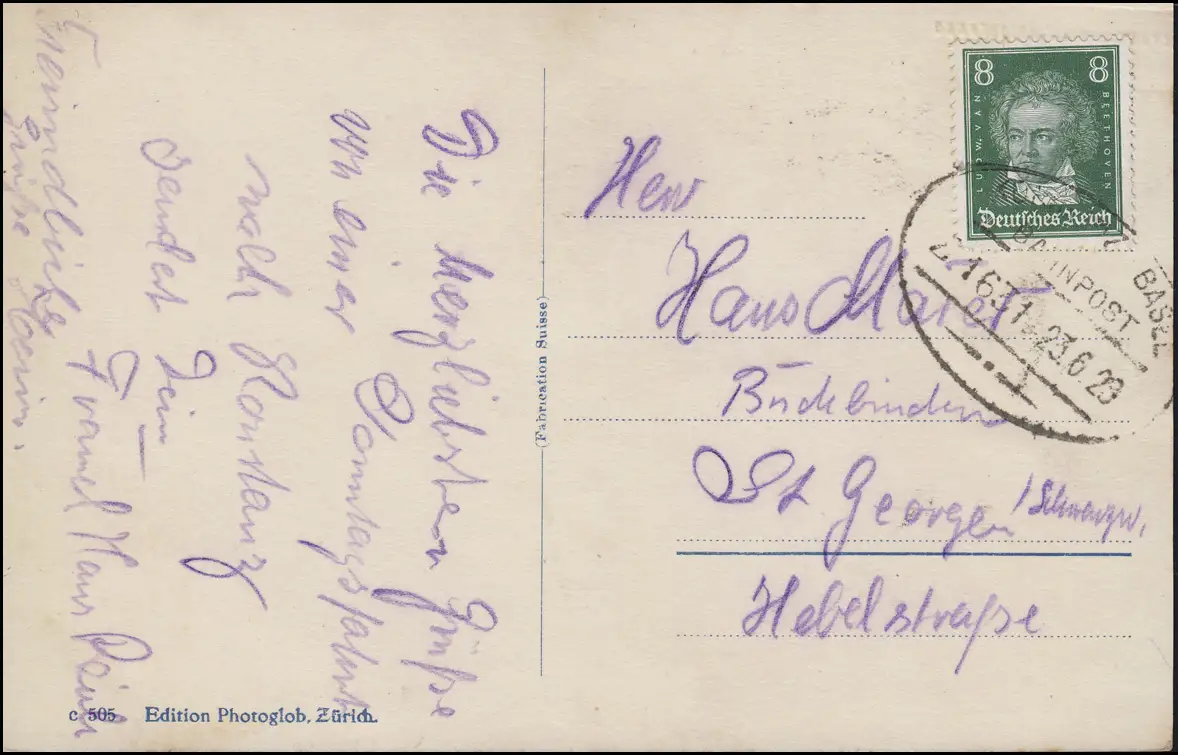 Die herzlichsten Grüße
von einer Sonntagsfahrt
nach Konstanz
sendet Dein
Freund Hans
Freundliche
Grüße
(Fabrication Suisse)
c 505 Edition Photoglob, Zürich.
8 8
LUDW. VAN BEETHOVEN
Deutsches Reich
BAHNPOST BASEL
Z.1631 23.6.28
Herr
Hans
Buchbinder
St Georgen / Schwarzw.
Hebelstraße